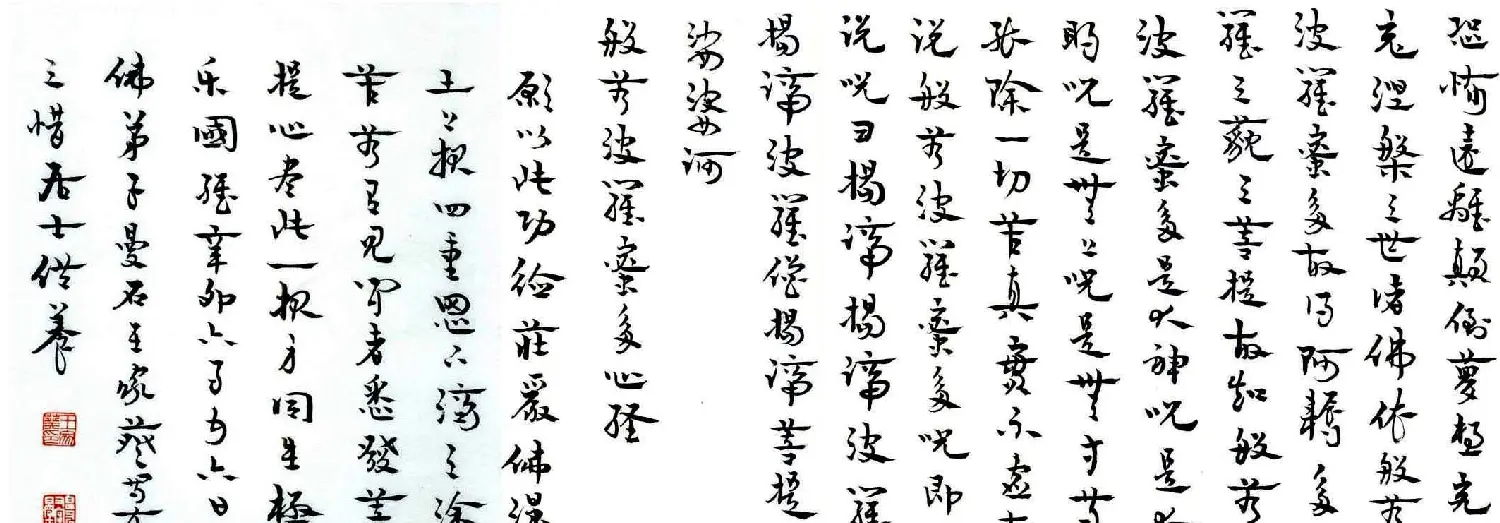 恐怖遠離顛倒夢想究
竟涅槃三世諸佛依般若
波羅蜜多故得阿耨多
羅三藐三菩提故知般若
波羅蜜多是大神咒是大
明咒是無上咒是無等等
能除一切苦真實不虛故
说般若波羅蜜多咒即
说咒曰揭諦揭諦波羅
揭諦波羅僧揭諦菩提
娑婆訶
般若波羅蜜多心经
願以此功德莊嚴佛淨
土上报四重恩下濟三途
苦若有見闻者悉發菩
提心尽此一报身同生極
乐國 辛卯六月初六日
佛弟子曼石王家葵
三惜居士供養